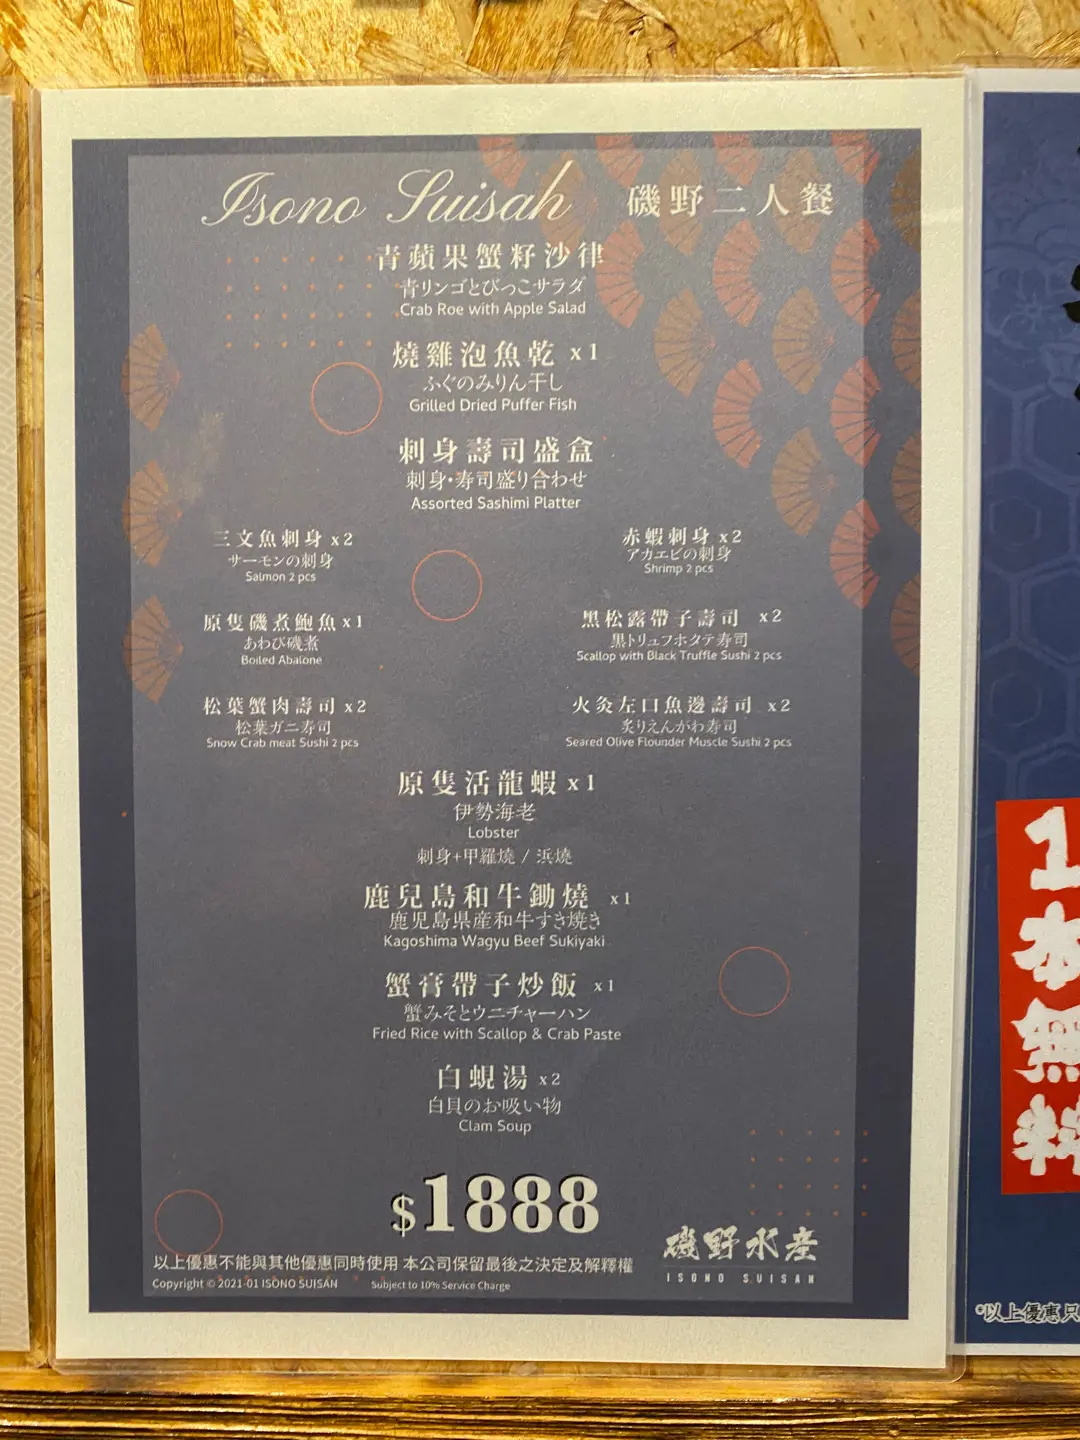 Isono Suisan 磯野二人餐
青蘋果蟹籽沙律
青リンゴとびっこサラダ
Crab Roe with Apple Salad
燒雞泡魚乾 x1
ふぐのみりん干し
Grilled Dried Puffer Fish
刺身壽司盛盒
刺身・寿司盛り合わせ
Assorted Sashimi Platter
三文魚刺身 x2
サーモンの刺身
Salmon 2 pcs
赤蝦刺身 x2
アカエビの刺身
Shrimp 2 pcs
原隻磯煮鮑魚 x1
あわび磯煮
Boiled Abalone
黑松露帶子壽司 x2
黒トリュフホタテ寿司
Scallop with Black Truffle Sushi 2 pcs
松葉蟹肉壽司 x2
松葉ガニ寿司
Snow Crab meat Sushi 2 pcs
火灸左口魚邊壽司 x2
炙りえんがわ寿司
Seared Olive Flounder Muscle Sushi 2 pcs
原隻活龍蝦 x1
伊勢海老
Lobster
刺身+甲羅燒 / 浜燒
鹿兒島和牛鋤燒 x1
鹿児島県産和牛すき焼き
Kagoshima Wagyu Beef Sukiyaki
蟹膏帶子炒飯 x1
蟹みそとウニチャーハン
Fried Rice with Scallop & Crab Paste
白蜆湯 x2
白貝のお吸い物
Clam Soup
$1888
以上優惠不能與其他優惠同時使用 本公司保留最後之決定及解釋權
Copyright © 2021-01 ISONO SUISAN Subject to 10% Service Charge
磯野水産
ISONO SUISAN
1本無料
*以上優惠只